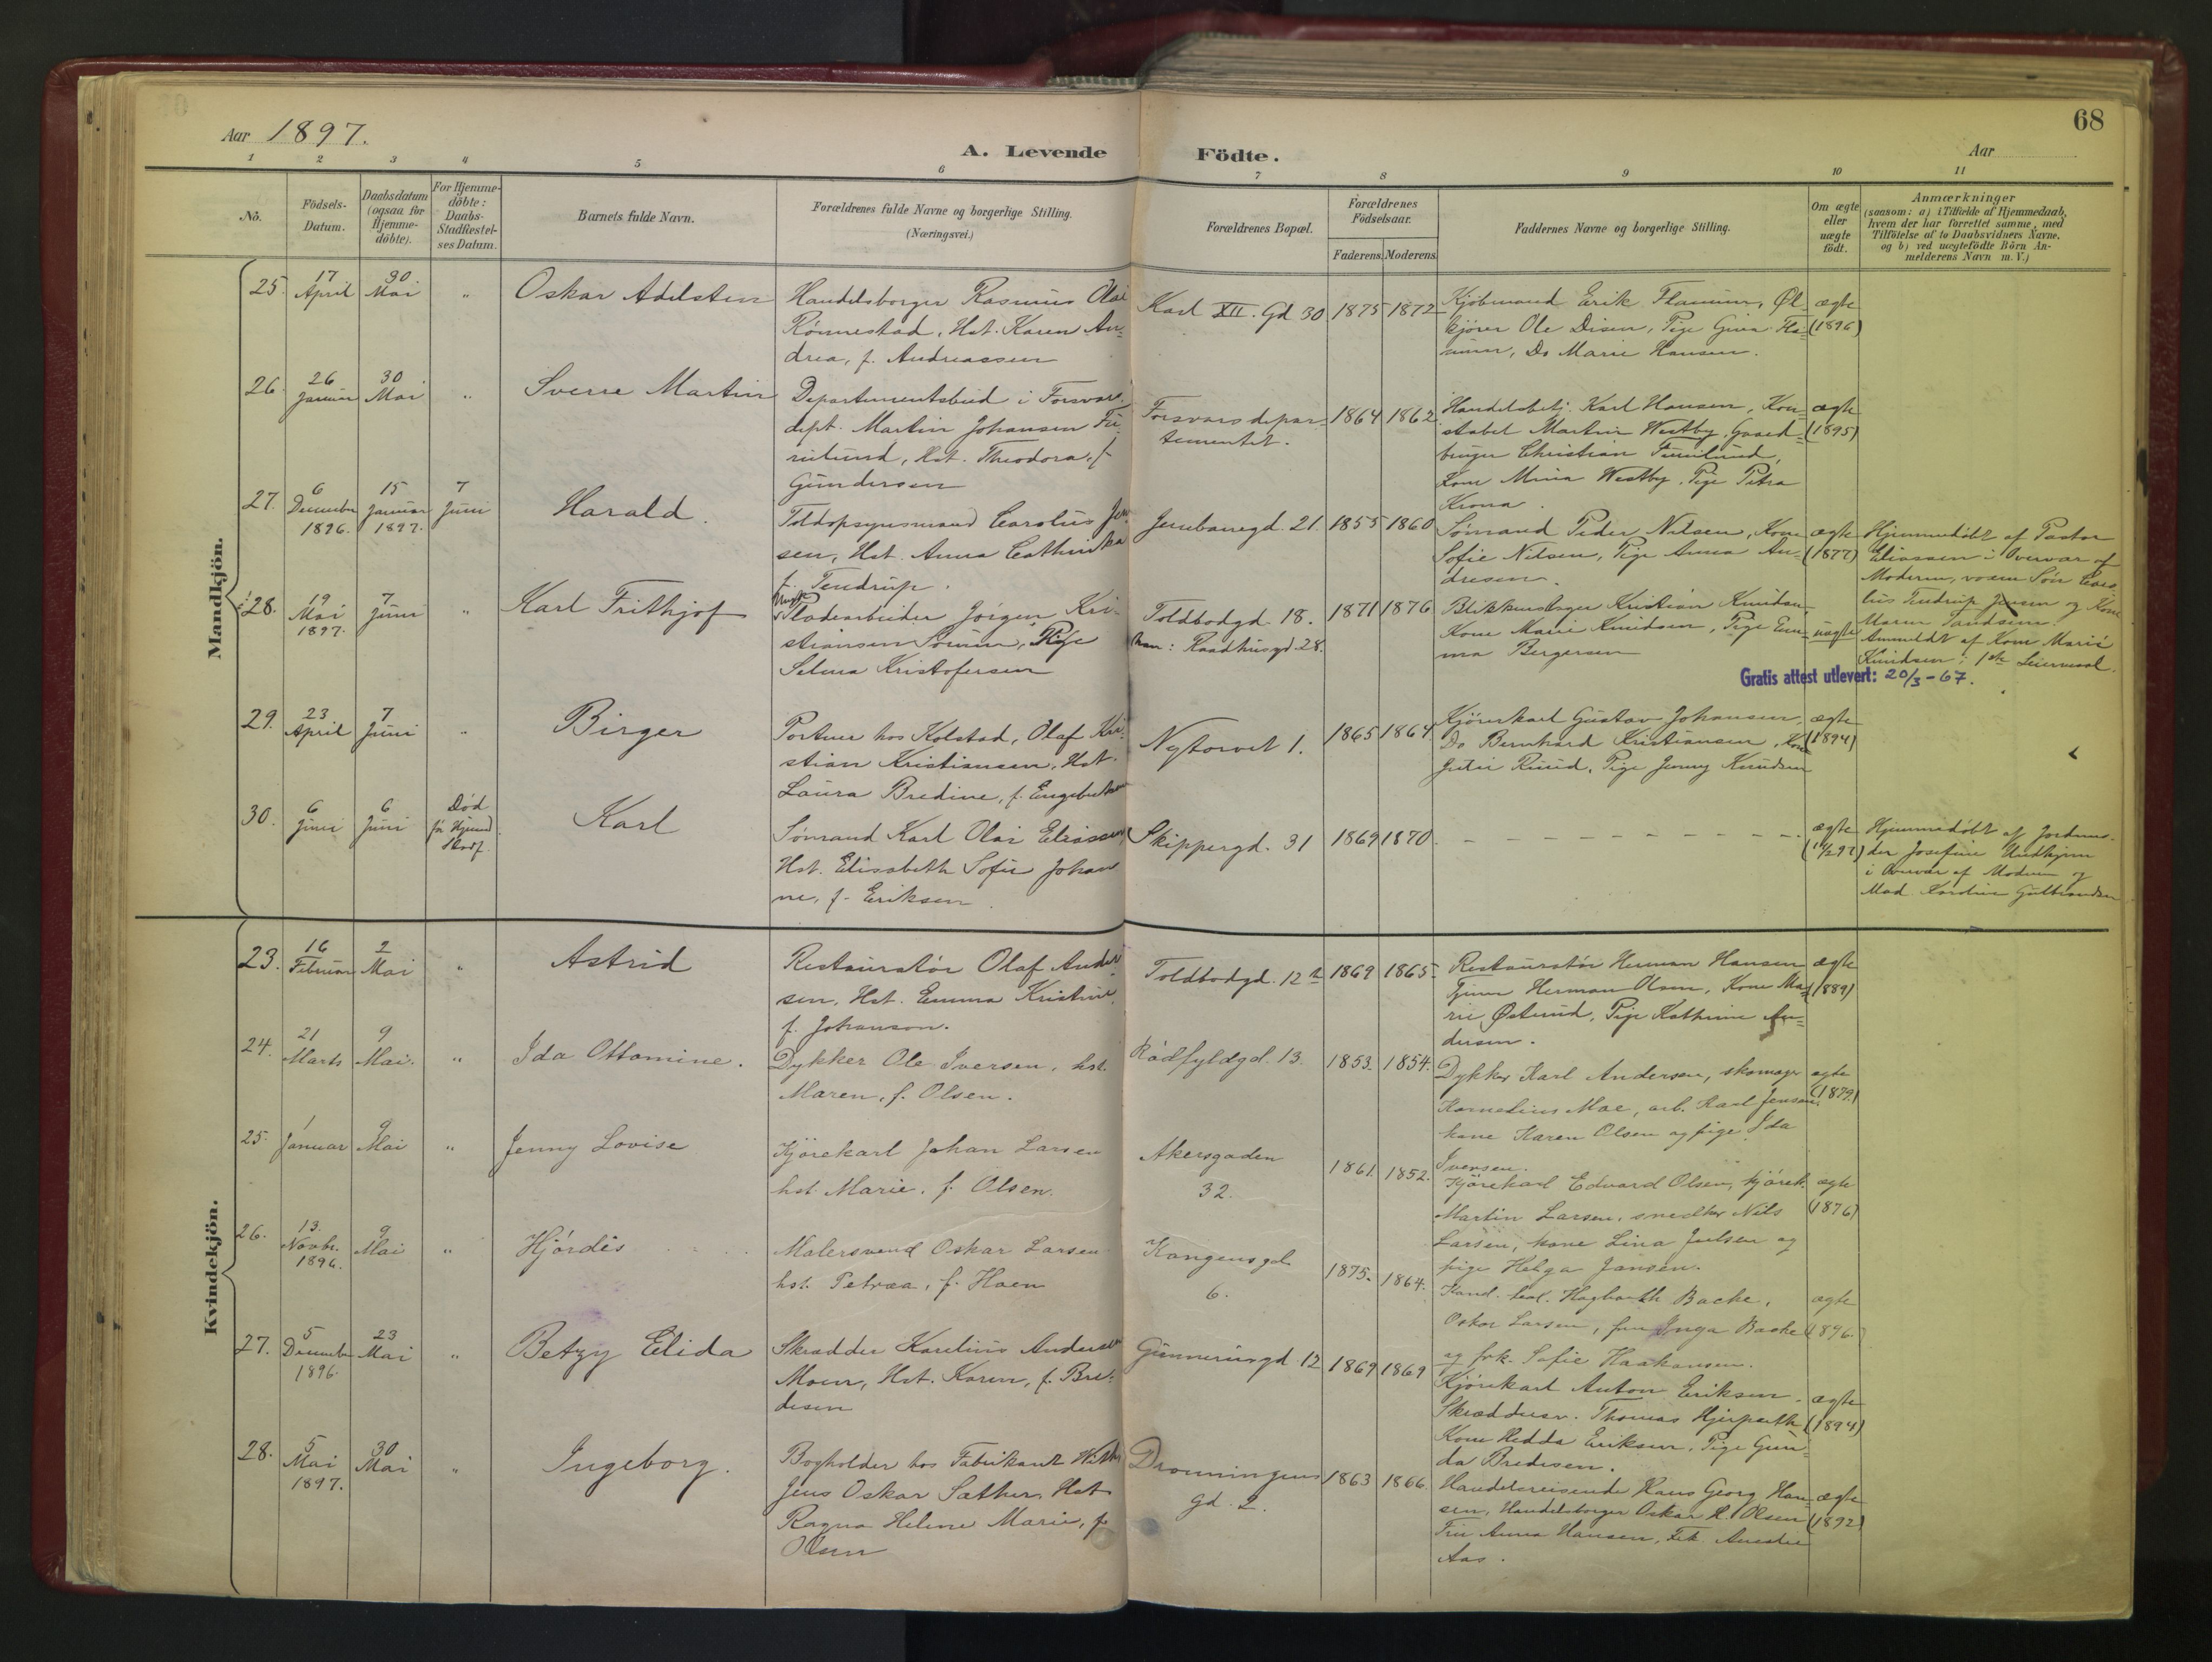 68
Aar 1897.
A. Levende Födte.
Aar
1 2 3 4 5 6 7 8 9 10 11
No.
Födsels-
Datum.
Daabsdatum
(ogsaa for
Hjemme-
döbte).
For Hjemme-
döbte:
Daabs-
Stadfæstel-
ses Datum.
Barnets fulde Navn.
Forældrenes fulde Navne og borgerlige Stilling.
(Næringsvei.)
Forældrenes Bopæl.
Forældrenes
Födselsaar.
Faderens. Moderens.
Faddernes Navne og borgerlige Stilling.
Om ægte
eller
uægte
födt.
Anmærkninger
(saasom: a) i Tilfælde af Hjemmedaab,
hvem der har forrettet samme, med
Tilföielse af to Daabsvidners Navne,
og b) ved uægtefödte Börn An-
melderens Navn m. V.)
Mandkjön.
25. 17 April 30 Mai "
Oskar Adelsten
Handelsborger Rasmus Olai
Rönnestad, Hst. Karen An-
drea, f. Andreassen
Karl XII. Gd 30
1875 1872
Kjöbmand Erik Flamum, Øl-
kjörer Ole Disen, Pige Gina Fla-
mum, Do Marie Hansen.
ægte
(1896)
26. 26 Januar 30 Mai "
Sverre Martin
Departementsbud i Forsvars-
dept. Martin Johansen Fu-
rulund, Hst. Theodora, f.
Gundersen
Forsvarsdepar-
tementet.
1864 1862
Handelsbetj. Karl Hansen, Kon-
stabel Martin Westby, Gaard-
bruger Christian Furulund,
Kone Mina Westby, Pige Petra
Krona.
ægte
(1895)
27. 6 December 1896. 15 Januar 1897. 7 Juni
Harald.
Toldopsynsmand Carolus Jen-
sen, Hst. Anna Cathrinka
f. Tendrup.
Jernbanegd. 21.
1855 1860
Sömand Peder Nilsen, Kone
Sofie Nilsen, Pige Anna An-
dresen.
ægte
(1877)
Hjemmedöbt af Pastor
Eliassen i Overvær af
Moderen,
Tendrup Jensen og Kone
Maren
28. 19 Mai 1897. 7 Juni "
Karl Frithjof
Ungk.
Pladearbeider Jörgen Kri-
stiansen, Pige
Selma Kristofersen
Toldbodgd. 18.
Raadhusgd. 28.
1871 1876
Blikkenslager Kristian Knudsen
Kone Marie Knudsen, Pige Em-
ma Bergersen
uægte
Anmeldt af Kone Marie
Knudsen; 1ste Leiermaal.
Gratis attest utlevert: 20/3-67.
29. 23 April 7 Juni "
Birger
Portner hos Kolstad, Olaf Kri-
stian Kristiansen, Hst.
Laura Bredine, f. Engebretsen
Nytorvet 1.
1865 1864
Kjörekarl Gustav Johansen,
Do Bernhard Kristiansen, Kone
Ruud, Pige Jenny Knudsen
ægte
(1894)
30. 6 Juni 6 Juni Död för Hjemd. Stadf.
Karl
Sömand Karl Olai Eliassen
Hst. Elisabeth Sofie Johan
ne, f. Eriksen.
Skippergd. 31
1869 1870
ægte
Hjemmedöbt af Jordmo-
der Josefine
i Overvær af Moderen og
Mad. Karoline Gulbrandsen
Kvindekjön.
23. 16 Februar 2 Mai "
Astrid
Restauratör Olaf Ander-
sen, Hst. Emma Kristine
f. Johanson.
Toldbodgd. 12
1869 1865.
Restauratör Herman Hansen
Tjener Herman Olsen, Kone Ma-
rie Østlund, Pige Kathrine An-
dersen.
ægte
(1889)
24. 21 Marts 9 Mai. "
Ida Ottomine.
Dykker Ole Iversen, hst.
Maren, f. Olsen.
Rödfyldgd. 13.
1853. 1854.
Dykker Karl Andersen, skomager
Kornelius Moe, arb. Karl Jensen.
kone Karen Olsen og pige Ida
Iversen.
ægte
(1879.)
25. 1 Januar 9 Mai "
Jenny Lovise
Kjörekarl Johan Larsen
hst. Marie, f. Olsen.
Akersgaden
32.
1861. 1852.
Kjörekarl Edvard Olsen, kjörek.
Martin Larsen, snedker Nils
Larsen, kone Lina Juelsen og
pige Helga Jansen.
ægte
(1876)
26. 13. Novbr. 1896. 9 Mai "
Hjördis
Malersvend Oskar Larsen
hst. Petrea, f. Hoen
Kongensgd.
6.
1875. 1864.
Kand. Hagbarth Backe,
Oskar Larsen, fru Inga Backe
og frk. Sofie Haakonsen.
ægte
(1896.)
27. 5 December 1896. 23 Mai "
Betzy Elida
Skrædder Karelius Andersen
Moen, Hst. Karen, f. Bre-
desen
Gunnerusgd 12
1869 1869
Kjörekarl Anton Eriksen,
Skræddersv. Thomas
Kone Hedda Eriksen, Pige Gun-
da Bredesen.
ægte
(1894)
28. 5 Mai 1897. 30 Mai "
Ingeborg.
Bogholder hos Fabrikant
Jens Oskar Sæther, Hst.
Ragna Helene Marie, f.
Olsen
Dronningens
Gd. 2.
1863 1866.
Handelsreisende Hans Georg Han-
sen, Handelsborger Oskar Olsen
Fru Anna Hansen, Frk.
Aas.
ægte
(1892)